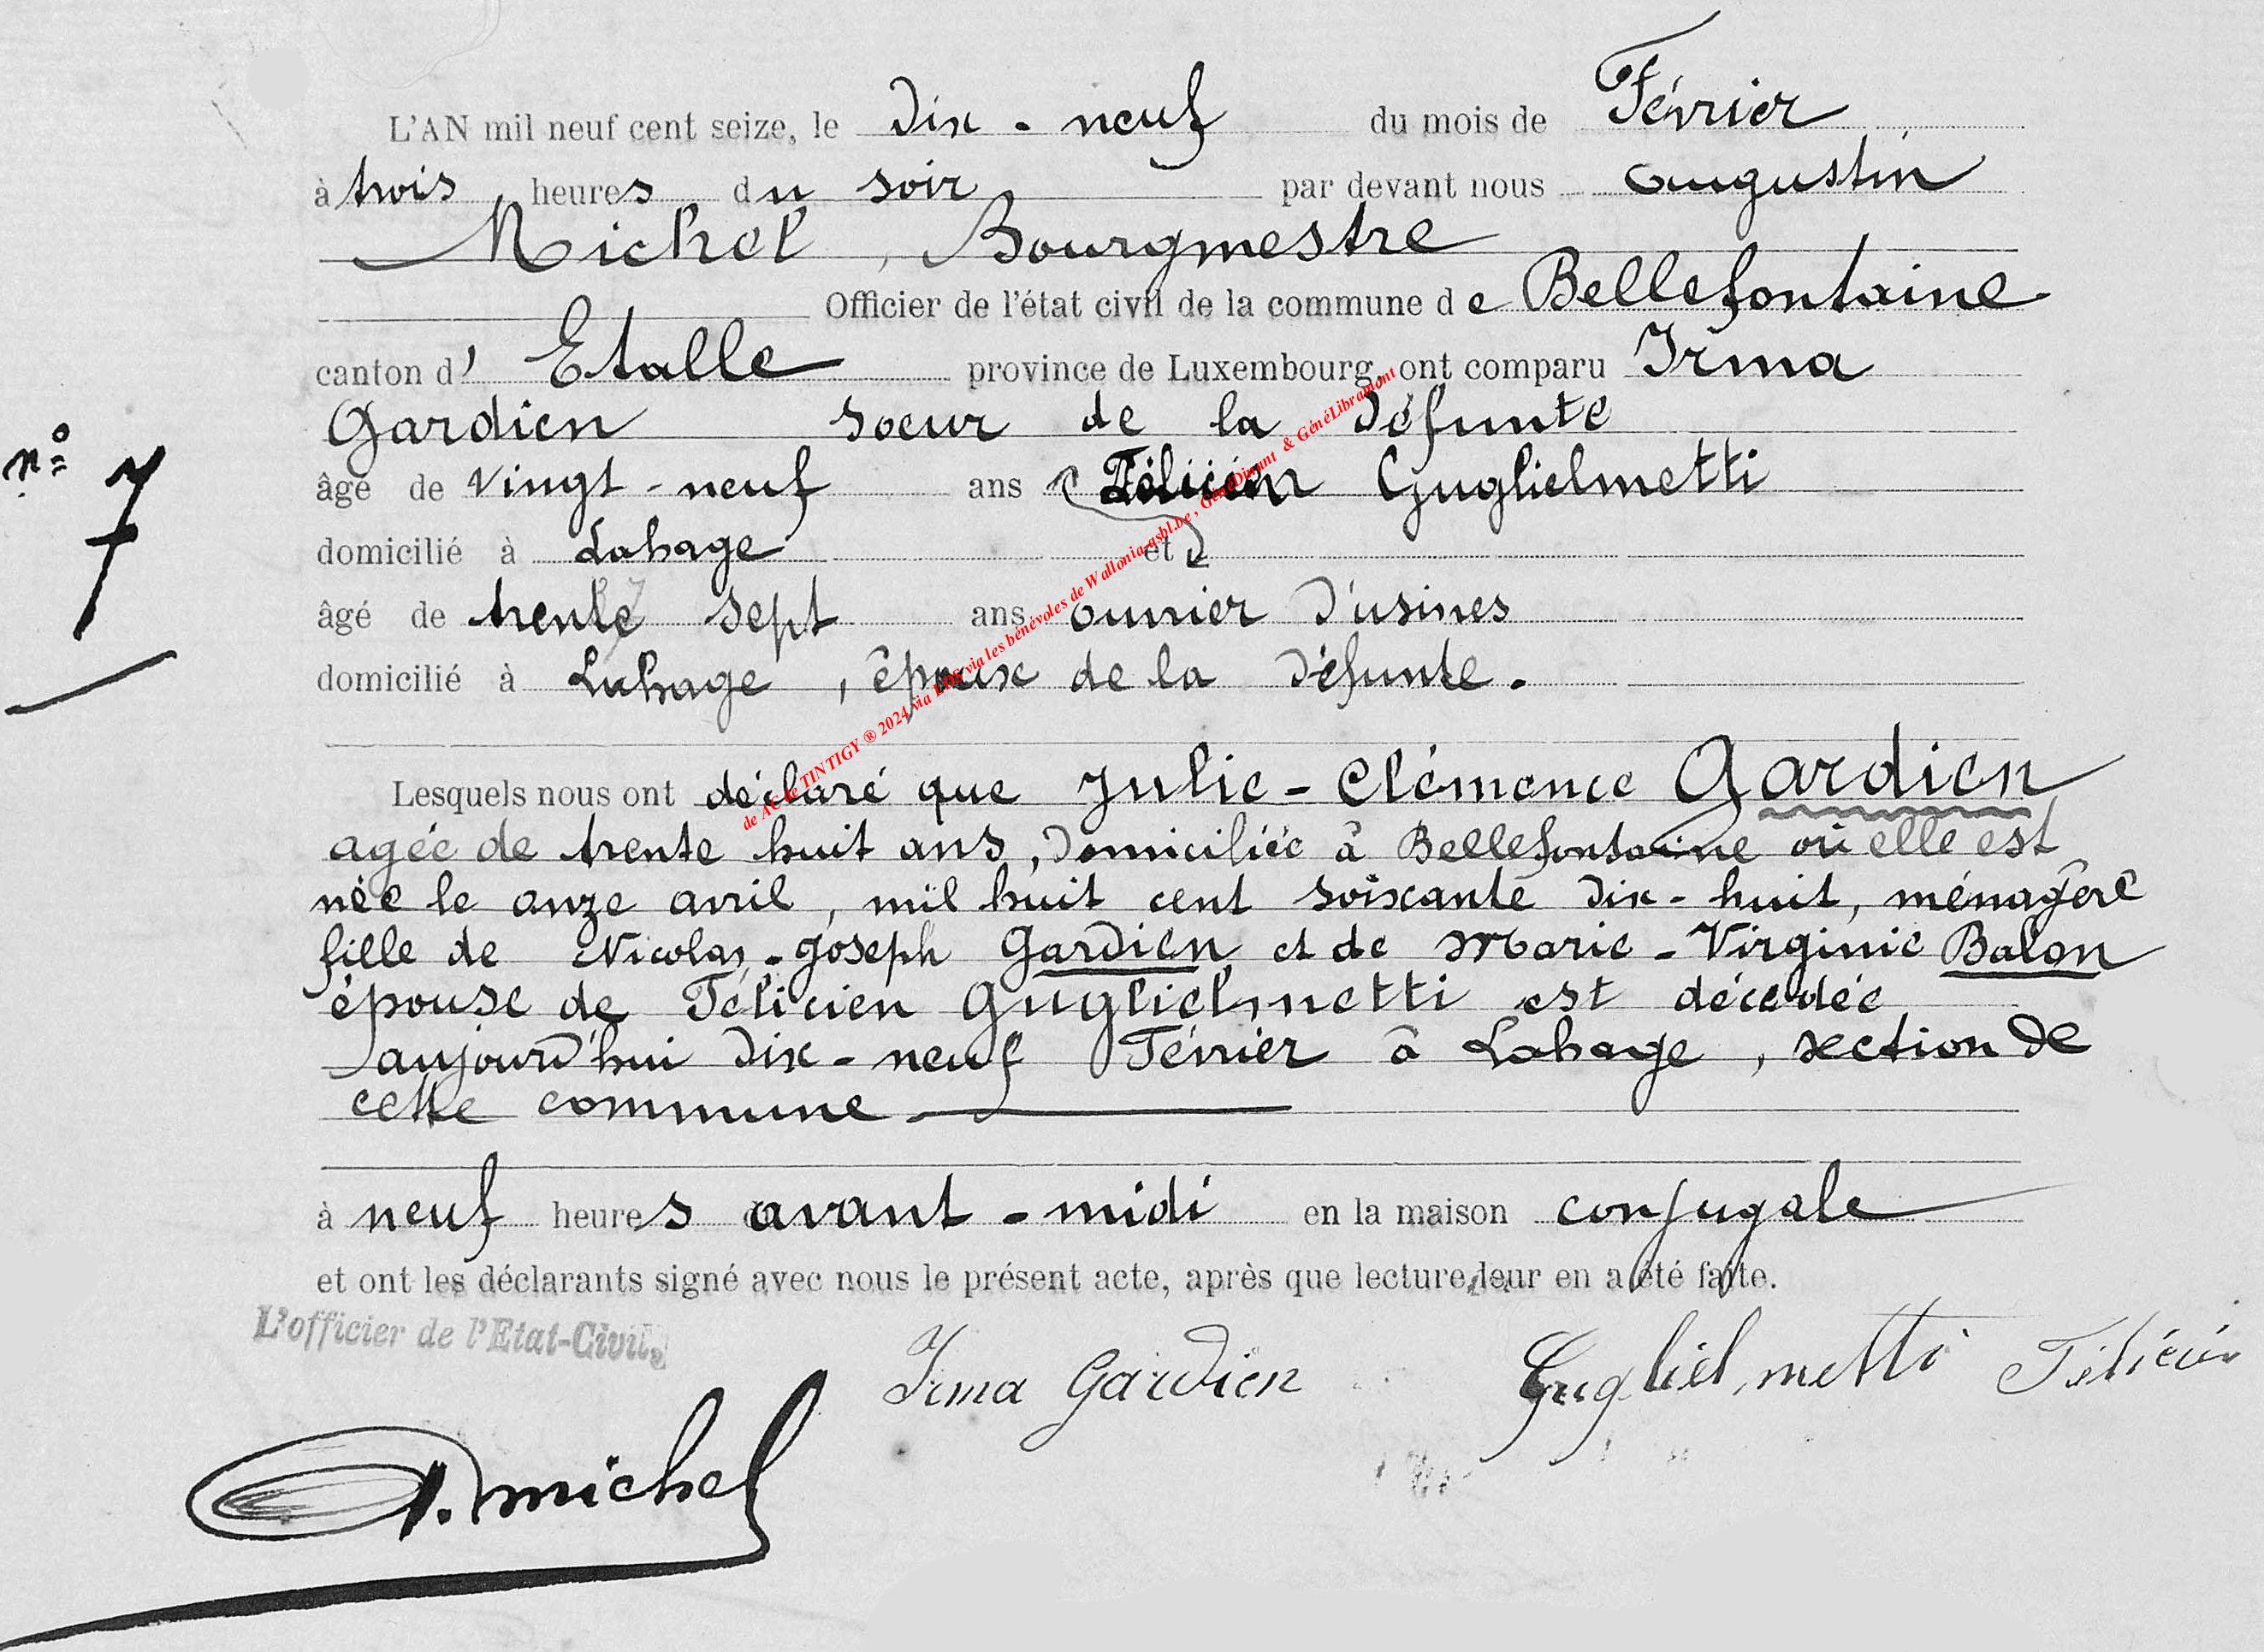 L'AN mil neuf cent seize, le dix - neuf du mois de Février
à trois heures du soir par devant nous Augustin
Michel, Bourgmestre
Officier de l'état civil de la commune de Bellefontaine
canton d' Etalle province de Luxembourg, ont comparu Irma
Gardien soeur de la défunte
âgé de vingt - neuf ans Félicien Guglielmetti
nº 7
domicilié à Lahage et
âgé de trente sept ans ouvrier d'usines
domicilié à Lahage, époux de la défunte.
Lesquels nous ont déclaré que Julie - Clémence Gardien
agée de trente huit ans, domiciliée à Bellefontaine où elle est
née le onze avril, mil huit cent soixante dix - huit, ménagère
fille de Nicolas - Joseph Gardien et de Marie - Virginie Balon
épouse de Félicien Guglielmetti est décédée
aujourd'hui dix - neuf Février à Lahage, section de
cette commune
à neuf heures avant - midi en la maison conjugale
et ont les déclarants signé avec nous le présent acte, après que lecture leur en a été faite.
L'officier de l'Etat-Civil,
Irma Gardien Guglielmetti Félicien
A. Michel
de AC de TINTIGY ® 2024 via LDS via les bénévoles de Wallonia-asbl.be, GénéDinant & GénéLibramont